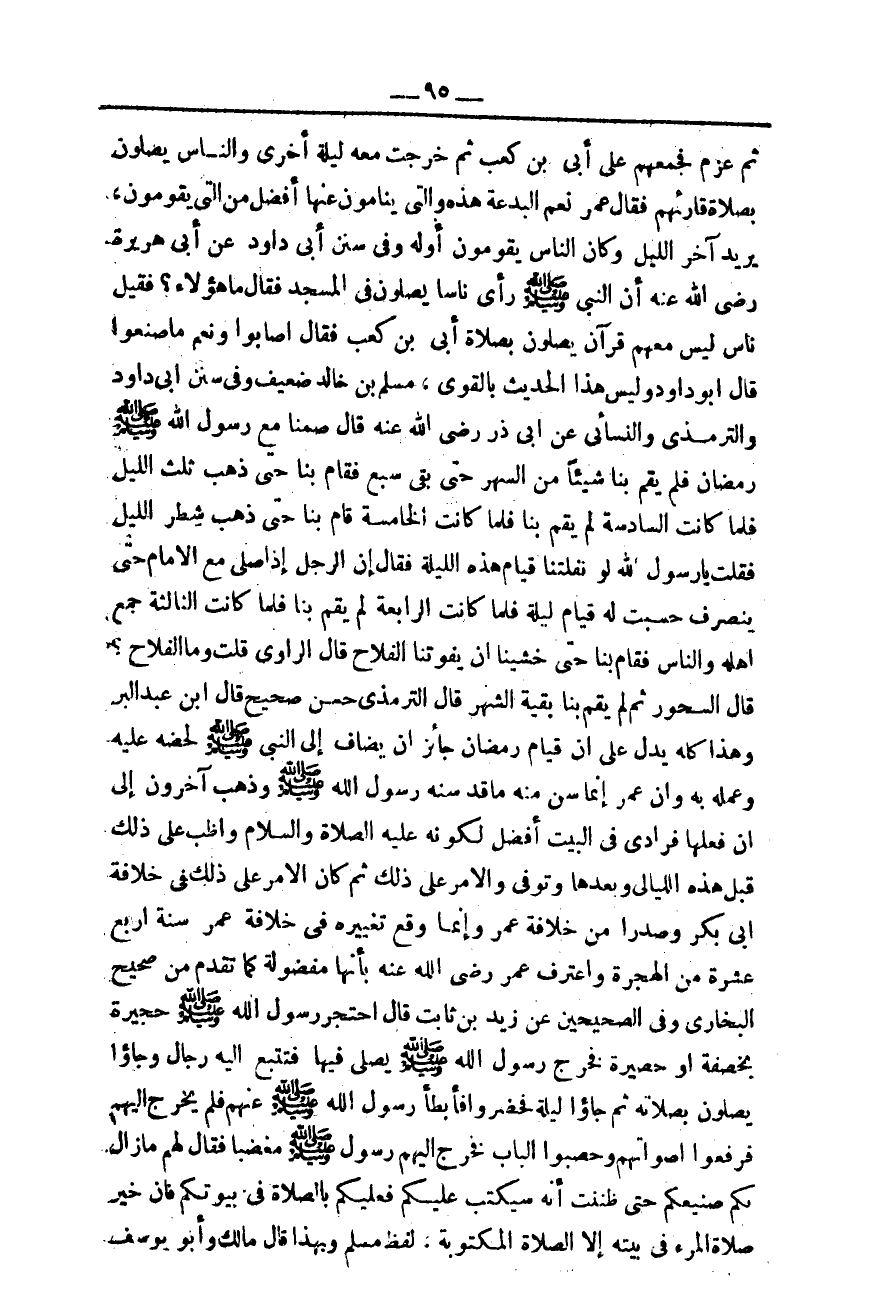 — ٩٥ —
ثم عزم فجمعهم على أبى بن كعب ثم خرجت معه ليلة أخرى والنـاس يصلون
بصلاة قارئهم فقال عمر نعم البدعة هذه والتى ينامون عنها أفضل من التى يقومون،
يريد آخر الليل وكان الناس يقومون أوله وفى سنن أبى داود عن أبى هريرة
رضى الله عنه أن النبى ﷺ رأى ناسا يصلون فى المسجد فقال ما هؤلاء؟ فقيل
ناس ليس معهم قرآن يصلون بصلاة أبى بن كعب فقال اصابوا ونعم ماصنعوا
قال ابو داود وليس هذا الحديث بالقوى ، مسلم بن خالد ضعيف وفى سنن ابى داود
والترمـذى والنسأبى عن ابى ذر رضى الله عنه قال صمنا مع رسول الله ﷺ
رمضان فلم يقم بنا شيئاً من السهر حتّى بقى سبع فقام بنا حتّى ذهب ثلث الليل
فلما كانت السادسة لم يقم بنا فلما كانت الخامسة قام بنا حتّى ذهب شِطر الليل
فقلت يارسول الله لو نفلتنا قيام هذه الليلة فقال إن الرجل إذا صلى مع الامام حتّى
ينصرف حسبت له قيام ليلة فلما كانت الرابعة لم يقم بنا فلما كانت الثالثة جمع
اهله والناس فقام بنا حتّى خشينا ان يفوتنا الفلاح قال الراوى قلت وما الفلاح ؟
قال السحور ثم لم يقم بنا بقية الشهر قال الترمذى حسن صحيح قال ابن عبدالبر
وهذا كله يدل على ان قيام رمضان جائز ان يضاف إلى النبى ﷺ لحضه عليه
وعمله به وان عمر إنما سن منه ماقد سنه رسول الله ﷺ وذهب آخرون إلى
ان فعلها فرادى فى البيت أفضل لكونه عليه الصلاة والسلام واظب على ذلك
قبل هذه الليالى وبعدها وتوفى والامر على ذلك ثم كان الامر على ذلك فى خلافة
ابى بكر وصدرا من خلافة عمر وإنما وقع تغييره فى خلافة عمر سنة اربع
عشرة من الهجرة واعترف عمر رضى الله عنه بأنها مفضولة كما تقدم من صحيح
البخارى وفى الصحيحين عن زيد بن ثابت قال احتجر رسول الله ﷺ حجيرة
بخصفة او حصيرة فخرج رسول الله ﷺ يصلى فيها فتتبع اليه رجال وجاؤا
يصلون بصلاته ثم جاؤا ليلة فحضروا فأبطأ رسول الله ﷺ عنهم فلم يخرج اليهم
فرفعوا اصواتهم وحصبوا الباب فخرج اليهم رسول ﷺ مغضبا فقال لهم مازال
بكم صنيعكم حتى ظننت أنه سيكتب عليـكم فعليكم بالصلاة فى بيوتكم فان خير
صلاة المرء فى بيته إلا الصلاة المكتوبة ، لفظ مسلم وبهذا قال مالك وأبو يوسف